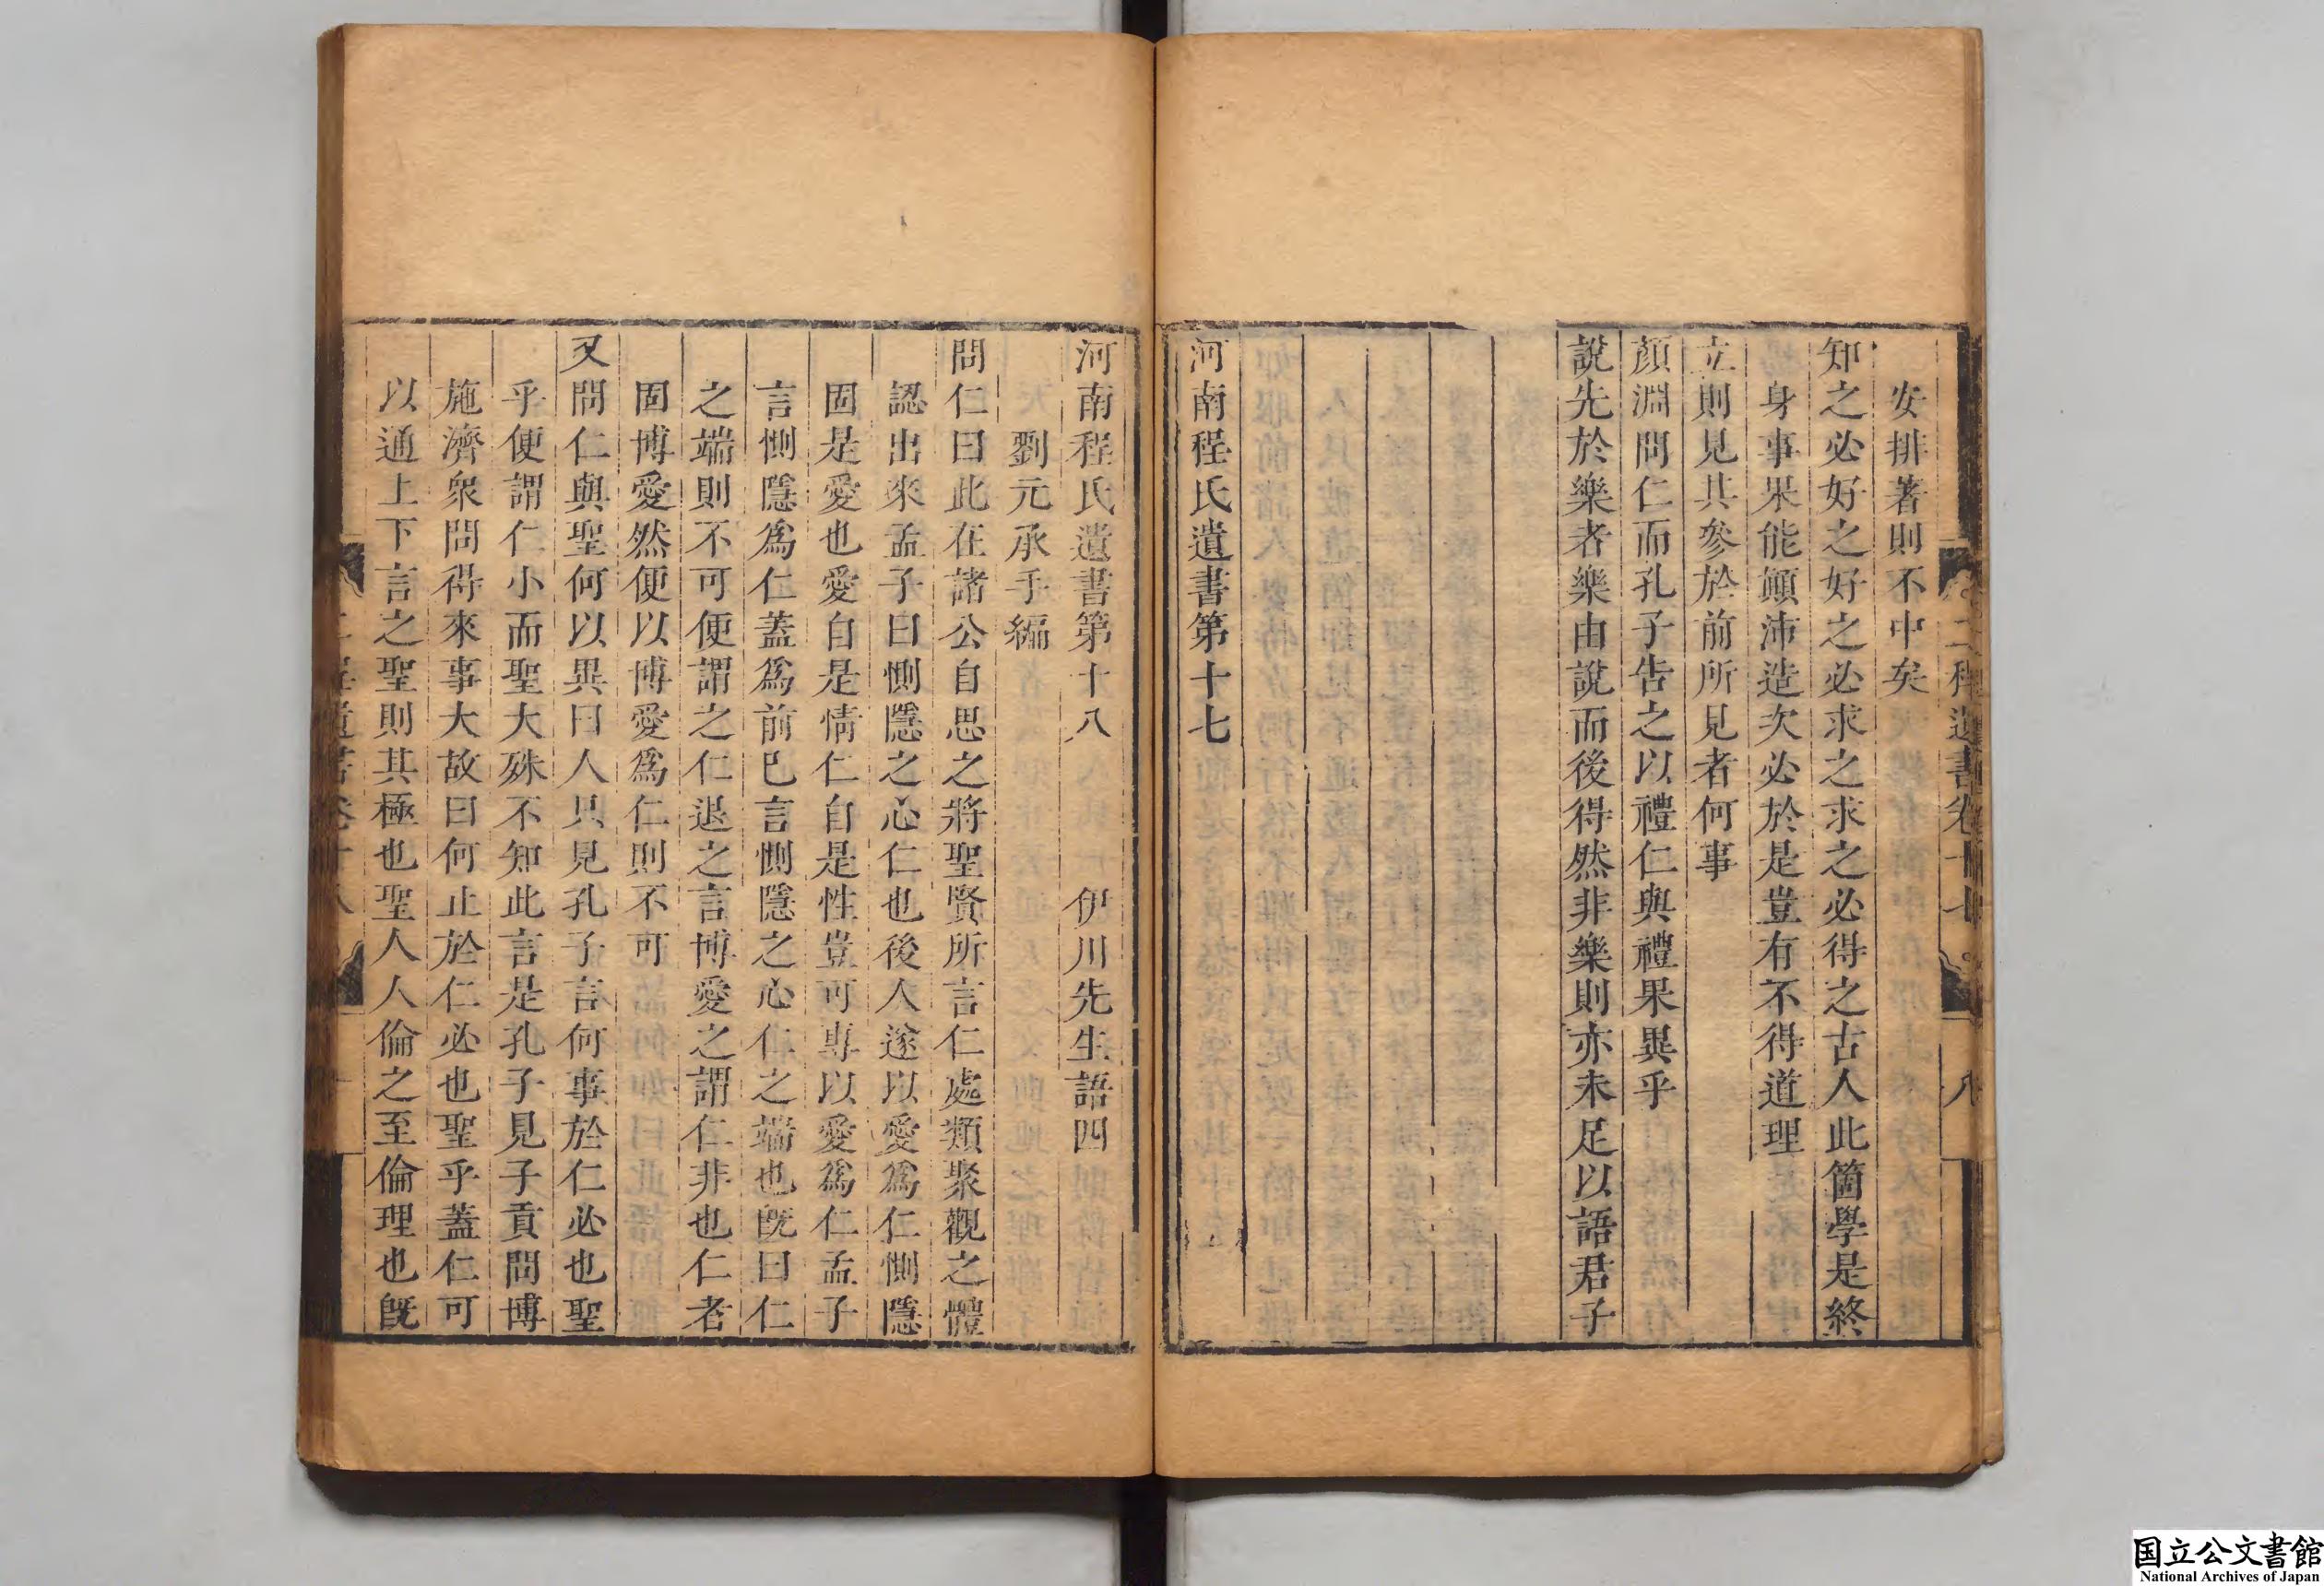 二程遺書卷十七
八
安排著則不中矣
知之必好之好之必求之求之必得之古人此箇學是終
身事果能顛沛造次必於是豈有不得道理
立則見其參於前所見者何事
顏淵問仁而孔子告之以禮仁與禮果異乎
說先於樂者樂由說而後得然非樂則亦未足以語君子
河南程氏遺書第十七
河南程氏遺書第十八 伊川先生語四
劉元承手編
問仁曰此在諸公自思之將聖賢所言仁處類聚觀之體
認出來孟子曰惻隱之心仁也後人遂以愛爲仁惻隱
固是愛也愛自是情仁自是性豈可專以愛爲仁孟子
言惻隱爲仁蓋爲前已言惻隱之心仁之端也旣曰仁
之端則不可便謂之仁退之言博愛之謂仁非也仁者
固博愛然便以博愛爲仁則不可
又問仁與聖何以異曰人只見孔子言何事於仁必也聖
乎便謂仁小而聖大殊不知此言是孔子見子貢問博
施濟衆問得來事大故曰何止於仁必也聖乎蓋仁可
以通上下言之聖則其極也聖人人倫之至倫理也旣
国立公文書館
National Archives of Japan